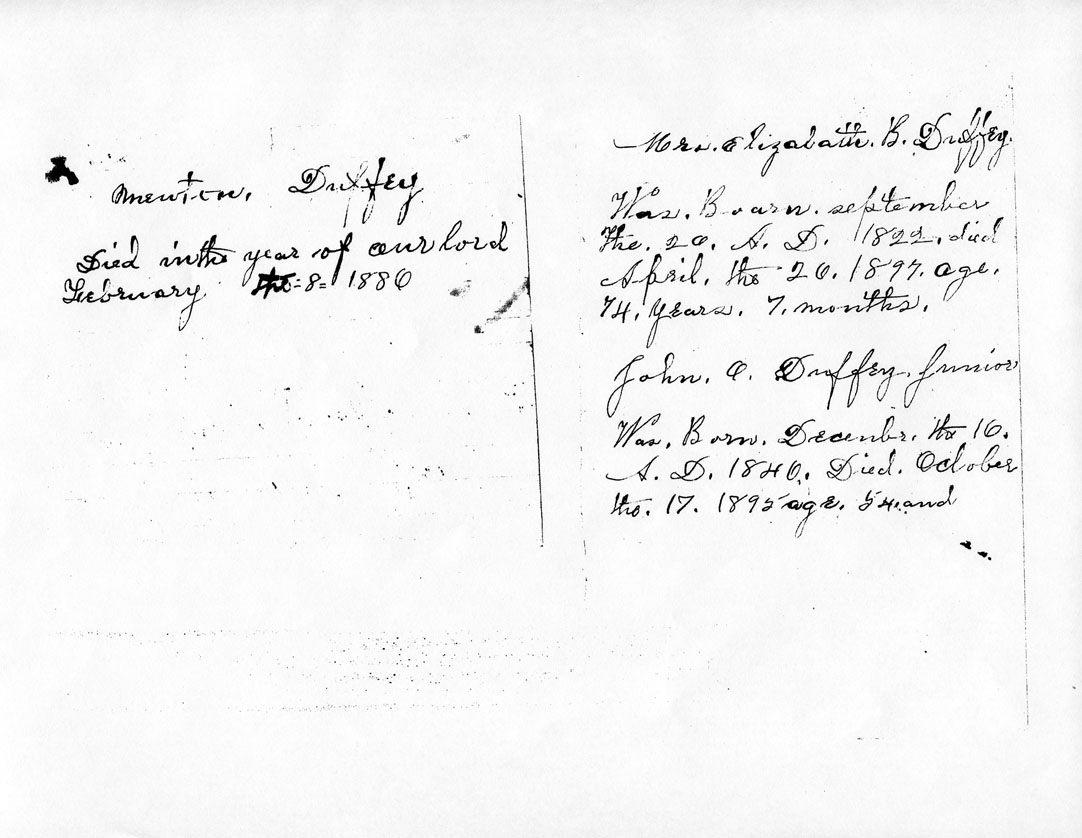 Newton. Duffey
Died in the year of our lord
February the =8= 1886
Mrs. Elizabath. B. Duffey.
Was. Boarn. september
the. 20. A. D. 1822. died
April. the 26. 1897. age.
74. years. 7. months.
John. O. Duffey. Junior
Was. Born. Decembr. the 16.
A. D. 1840. Died. October
the. 17. 1895 age. 54. and